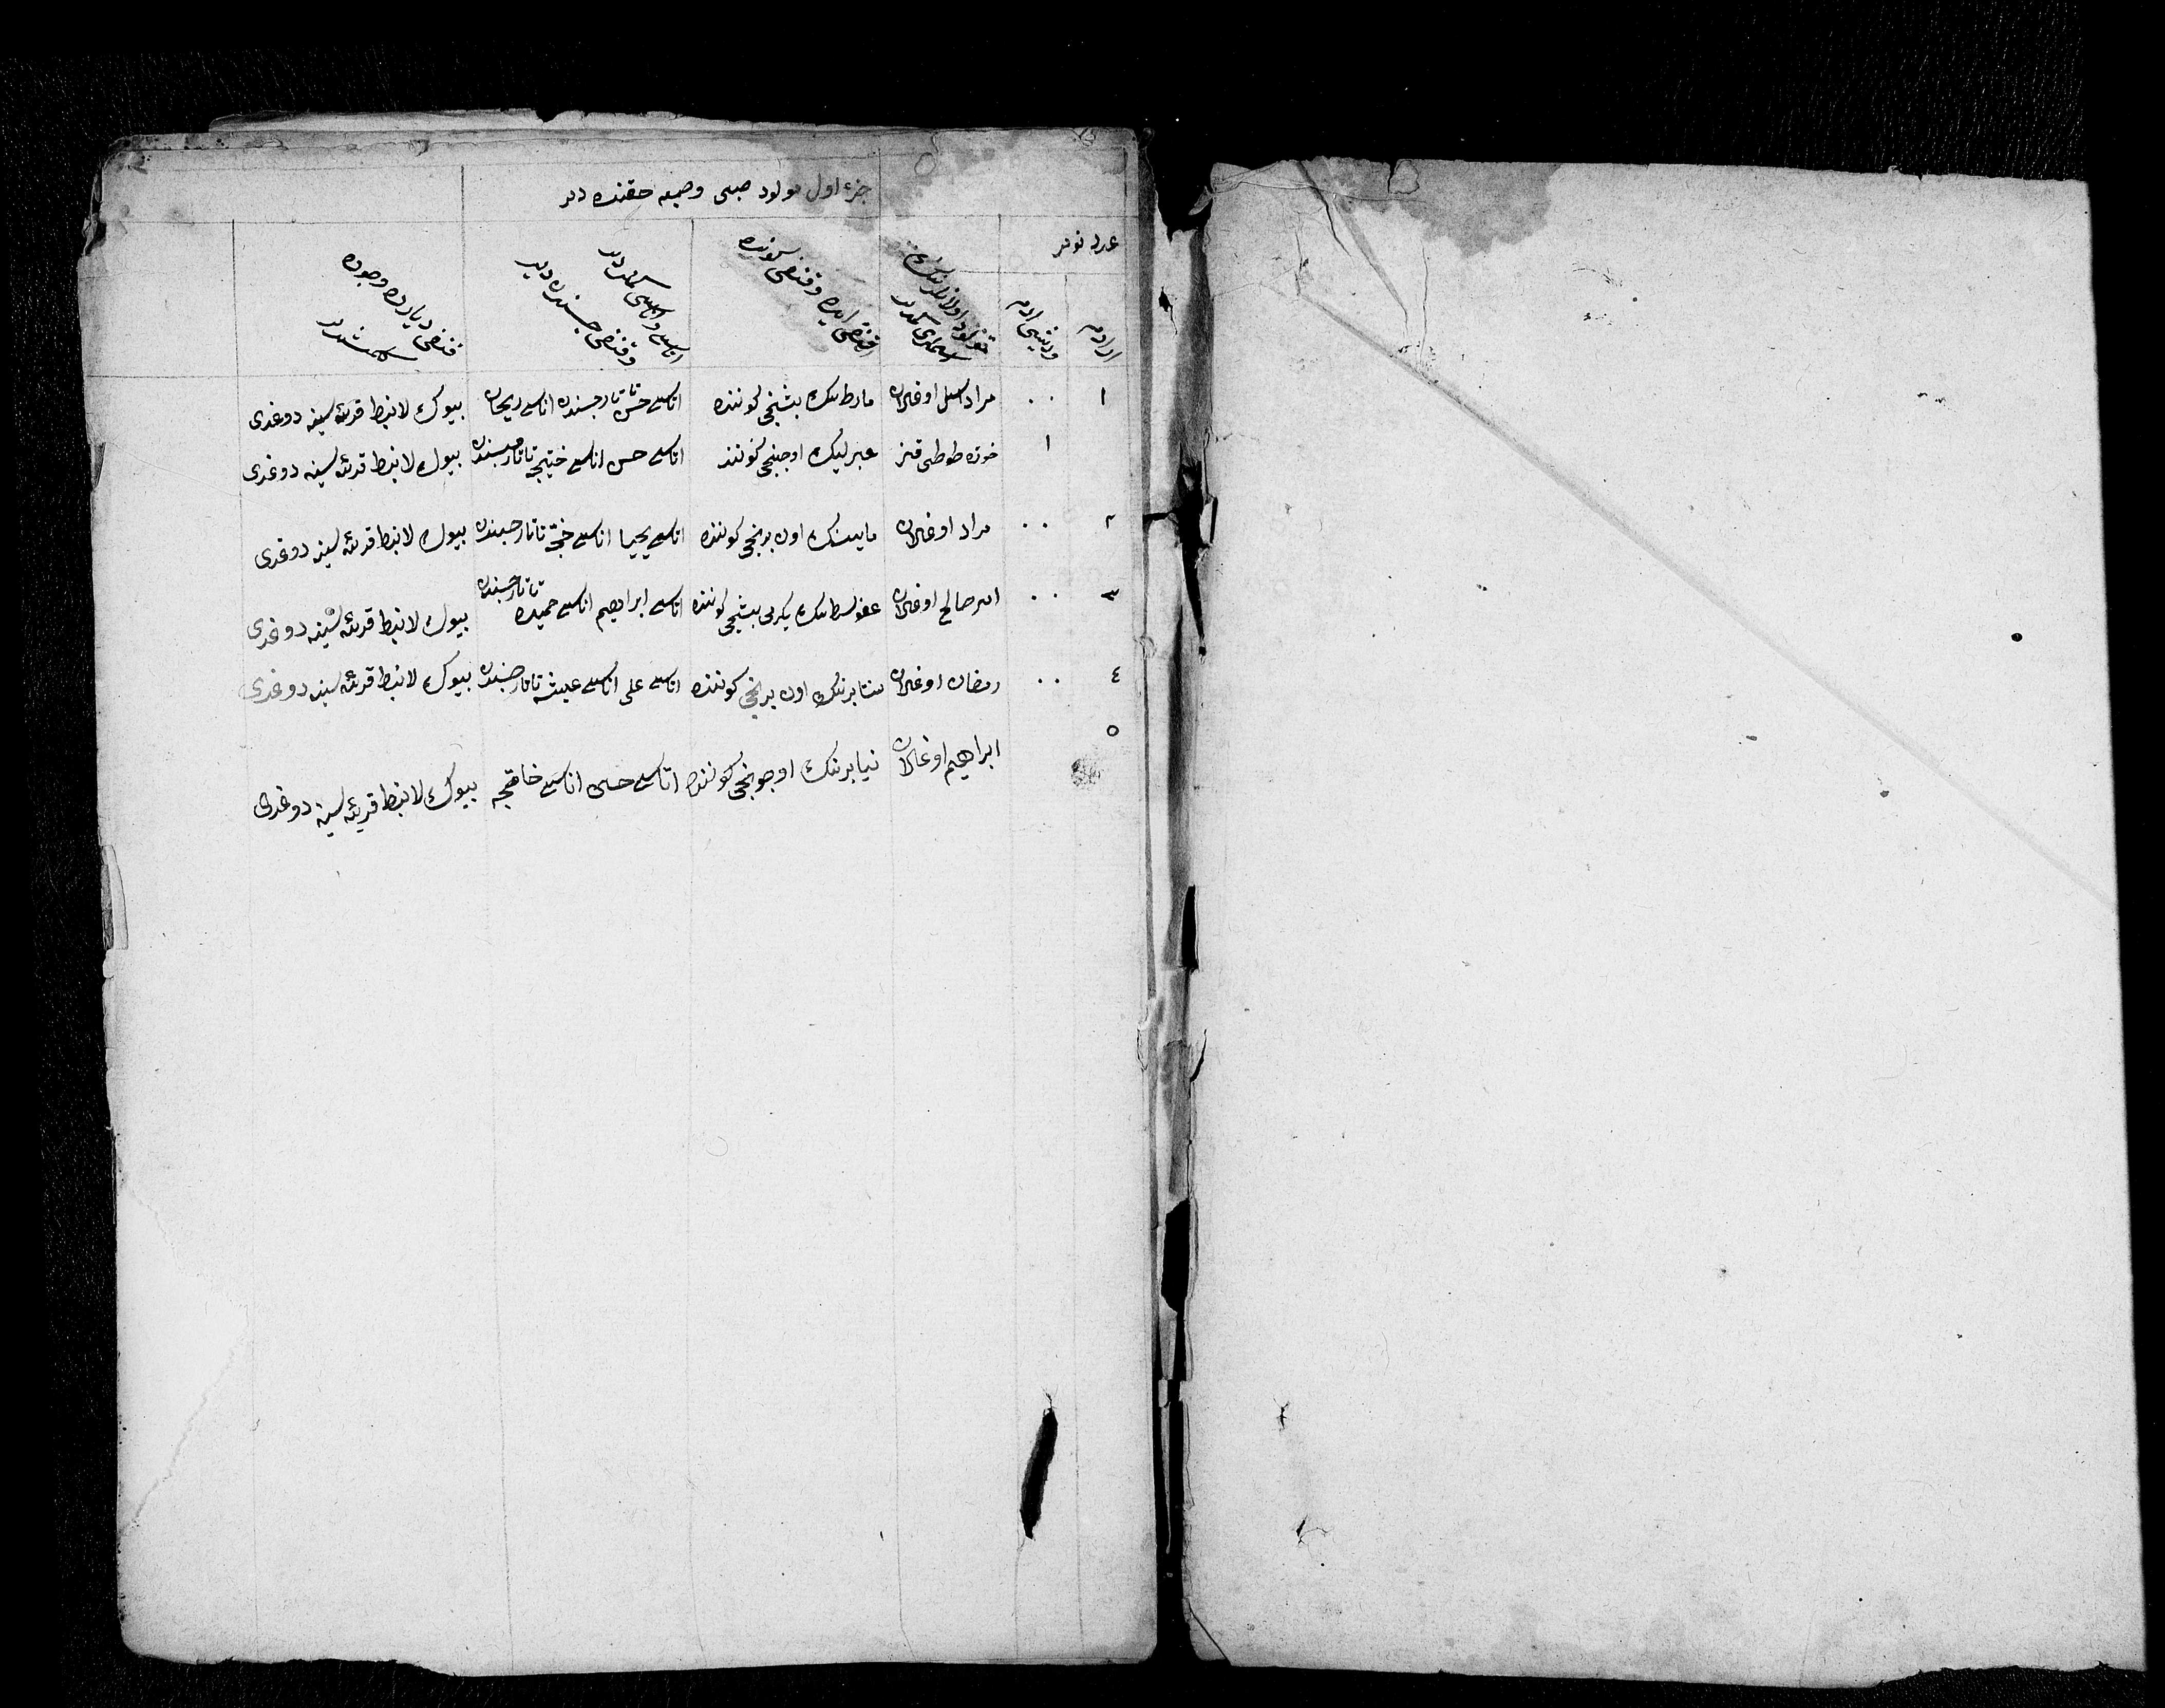 جزء اول مولود صبی وصبیه حقنده در
عدد نومر
ار آدم
ودیشی آدم
تولود اولانلرنك
اسملری کمدر
قنغی ایده وقنغی کونده
اتاسی واناسی کمدر
وقنغی جنسنده دیر
قنغی دیارده وجوده
کلمشدر
١ ٠٠ مراد اوغلان مارطنك بشنجی کوننده اتاسی حسن تاتار جنسنده اناسی ریحان بیوك لانبط قریه سینه دوغدی
١ طوطی قز عبرلیك اوچنجی کوننده اتاسی حسن اناسی ختیجه تاتار جنسنده بیوك لانبط قریه سینه دوغدی
٢ ٠٠ مراد اوغلان مایسنك اون برنجی کوننده اتاسی یحیا اناسی تاتار جنسنده بیوك لانبط قریه سینه دوغدی
٣ ٠٠ امر صالح اوغلان عغوسطنك یکرمی بشنجی کوننده اتاسی ابراهیم اناسی حمیده تاتار جنسنده بیوك لانبط قریه سینه دوغدی
٤ ٠٠ رمضان اوغلان سنتابرنك اون برنجی کوننده اتاسی علی اناسی عیشه تاتار جنسنده بیوك لانبط قریه سینه دوغدی
٥ ابراهیم اوغلان نیابرنك اوچونجی کوننده اتاسی حسن اناسی بیوك لانبط قریه سینه دوغدی